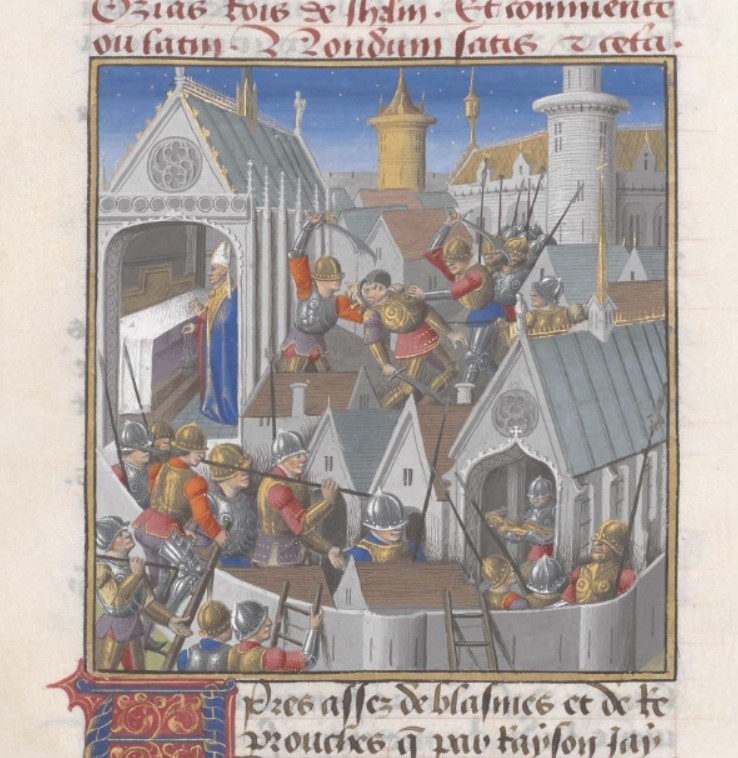 Ozias Rois de Jhrlm. Et commence
ou latin. Nondum satis et cetera.
Apres assez de blasmes et de re
prouches q̄ par raison jay